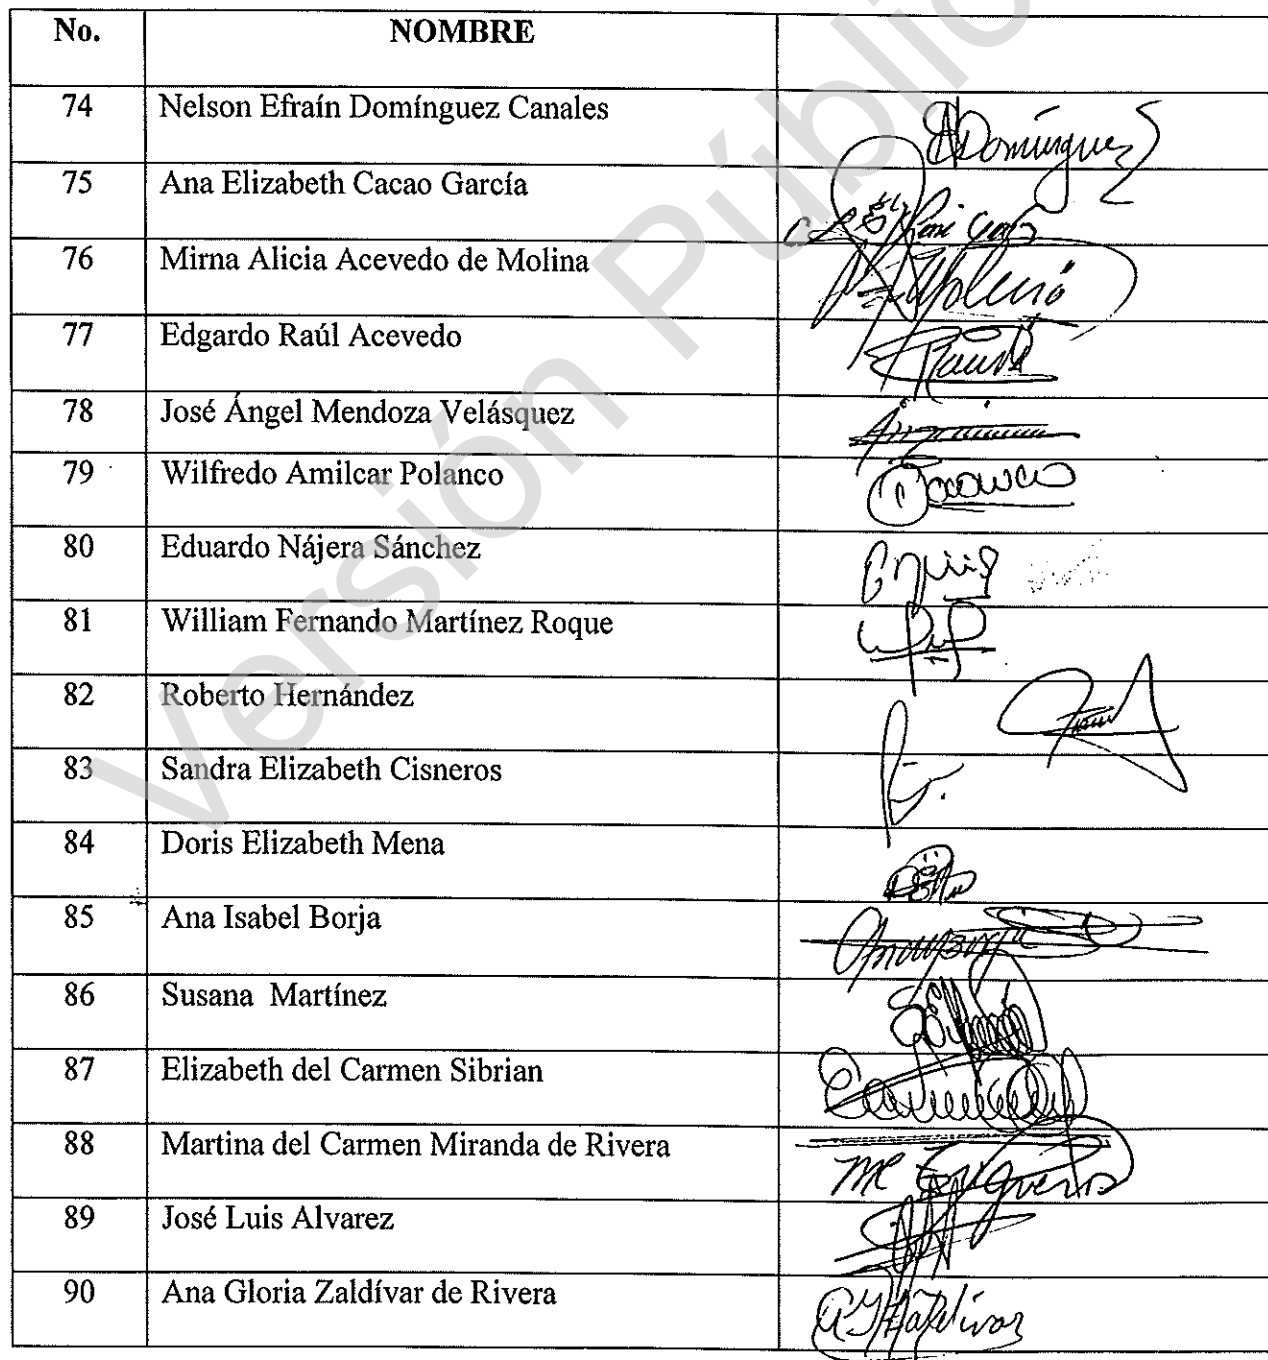 No. NOMBRE
74 Nelson Efraín Domínguez Canales
Domínguez
75 Ana Elizabeth Cacao García
76 Mirna Alicia Acevedo de Molina
77 Edgardo Raúl Acevedo
78 José Ángel Mendoza Velásquez
79 Wilfredo Amilcar Polanco
80 Eduardo Nájera Sánchez
81 William Fernando Martínez Roque
82 Roberto Hernández
83 Sandra Elizabeth Cisneros
84 Doris Elizabeth Mena
85 Ana Isabel Borja
86 Susana Martínez
87 Elizabeth del Carmen Sibrian
88 Martina del Carmen Miranda de Rivera
89 José Luis Alvarez
90 Ana Gloria Zaldívar de Rivera
Versión Públic